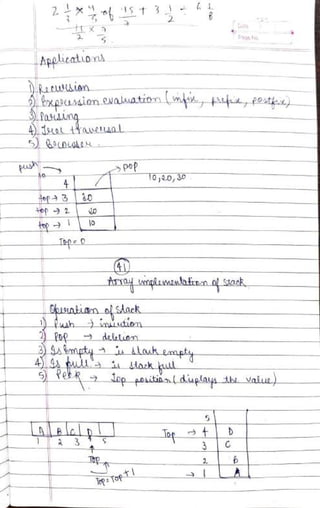 2 1/3 × 4/5 of 15/7 + 3 1/2 ÷
11/2 × 7/5
Date
Page No.
Applications
1) Recursion
2) Expression evaluation (infix, prefix, postfix)
3) Parsing
4) Tree traversal
5) Browser.
push → pop
10 10,20,30
4
top → 3 30
top → 2 20
top → 1 10
Top = 0
41
Array implementation of stack
Operation of stack
1) Push → insertion
2) POP → deletion
3) IsEmpty → is stack empty
4) Is full → is stack full
5) Peek → Top position (displays the value)
A B C D
1 2 3 4 5
Top
Top = Top + 1
5
Top → 4 D
3 C
2 B
→ 1 A